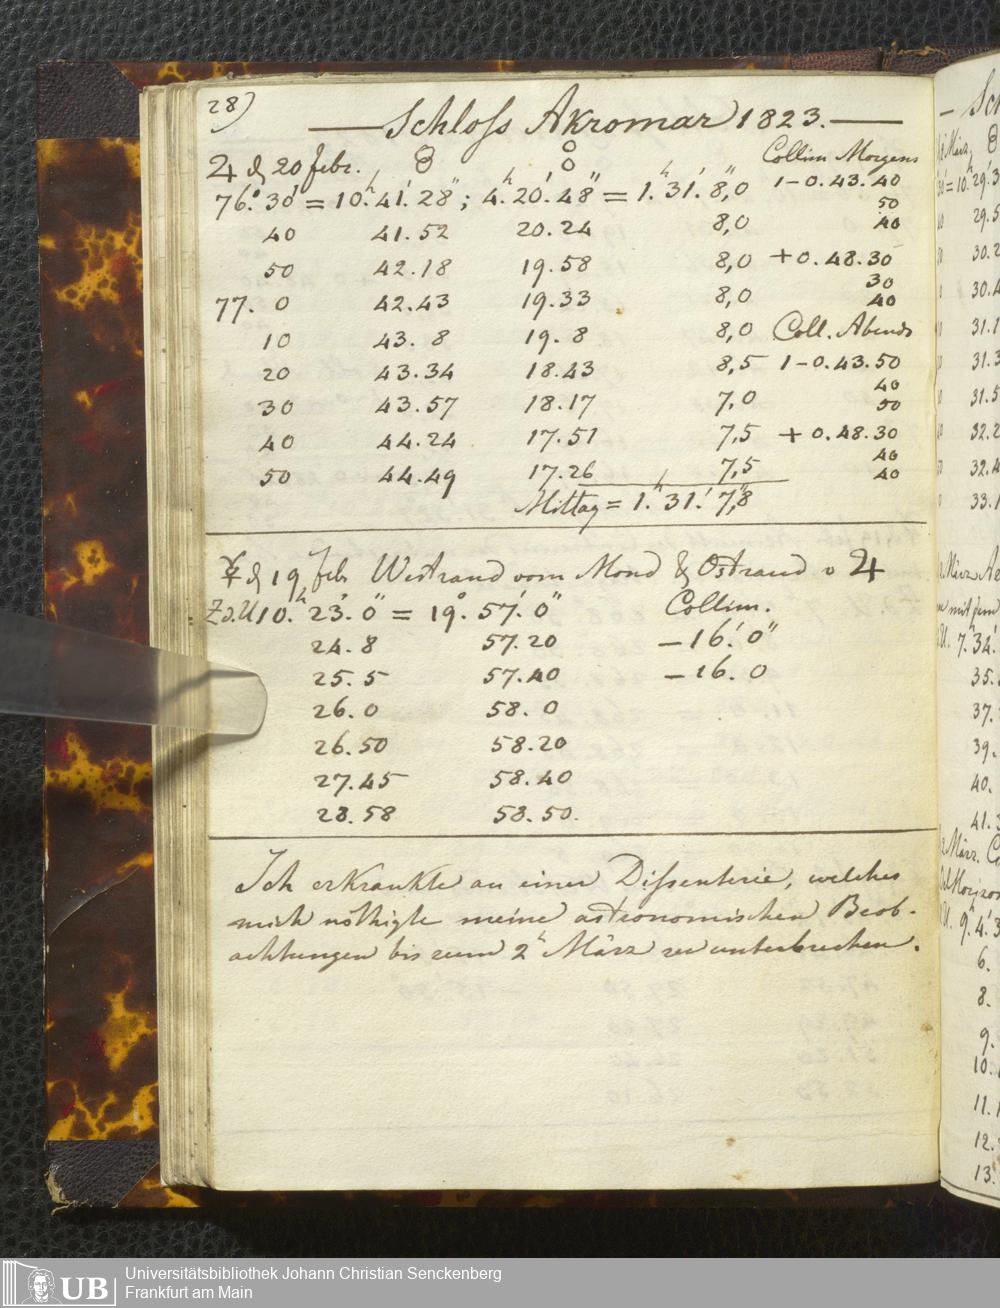 28)
Schloss Akromar 1823.
♃ d 20 febr. Collim Morgens
76.° 30' = 10.h 41.' 28"; 4.h 20.' 48" = 1.h 31.' 8,"0 1-0.43.40
50
40 41.52 20.24 8,0 40
50 42.18 19.58 8,0 +0.48.30
30
77. 0 42.43 19.33 8,0 40
10 43. 8 19. 8 8,0 Coll. Abends
20 43.34 18.43 8,5 1-0.43.50
40
30 43.57 18.17 7,0 50
40 44.24 17.51 7,5 +0.48.30
40
50 44.49 17.26 7,5 40
Mittag = 1.h 31.' 7,"8
☿ d 19 febr Westrand vom Mond & Ostrand v ♃
Z.d.U 10.h 23.' 0" = 19.° 57.' 0" Collim.
24. 8 57.20 -16.' 0"
25. 5 57.40 -16. 0
26. 0 58. 0
26.50 58.20
27.45 58.40
28.58 58.50.
Ich erkrankte an einer Dissenterie, welches
mich nöthigte meine astronomischen Beob-
achtungen bis zum 2n März zu unterbrechen.
UB
Universitätsbibliothek Johann Christian Senckenberg
Frankfurt am Main